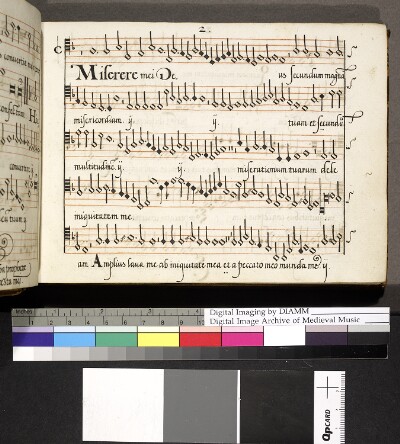 2.
C
Miserere mei De us secundum magnā
misericordiam. ij. ij. tuam et secundū
multitudinē. ij. ij. miserationum tuarum dele
iniquitatem me
am Amplius laua me ab iniquitate mea et a peccato meo munda me ij
Digital Imaging by DIAMM
Digital Image Archive of Medieval Music
QPCARD